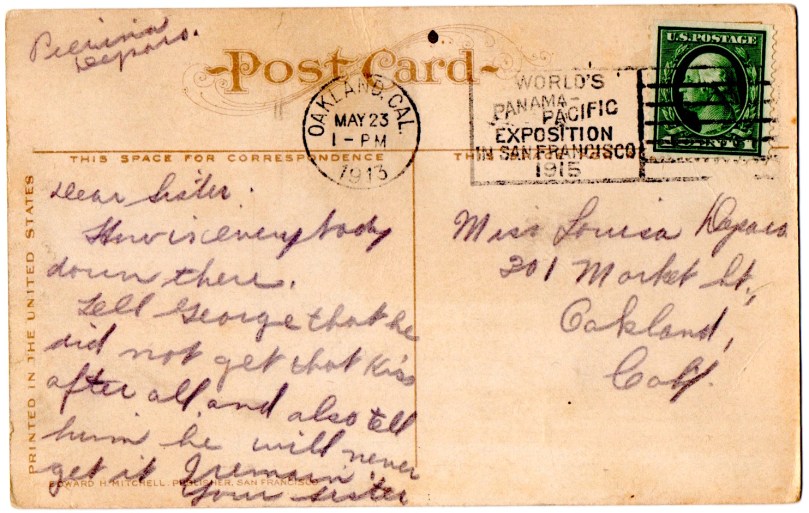 Pierina
Deparo.
Post Card
OAKLAND, CAL.
MAY 23
1-PM
1913
WORLD'S
PANAMA-
PACIFIC
EXPOSITION
IN SAN FRANCISCO
1915
U.S. POSTAGE
THIS SPACE FOR CORRESPONDENCE
PRINTED IN THE UNITED STATES
Dear Sister.
How is everybody
down there.
Tell George that he
did not get that kiss
after all, and also tell
him he will never
get it I remain
Your sister
EDWARD H. MITCHELL, PUBLISHER, SAN FRANCISCO
Miss Louisa Deparo
301 Market St.,
Oakland,
Calif.